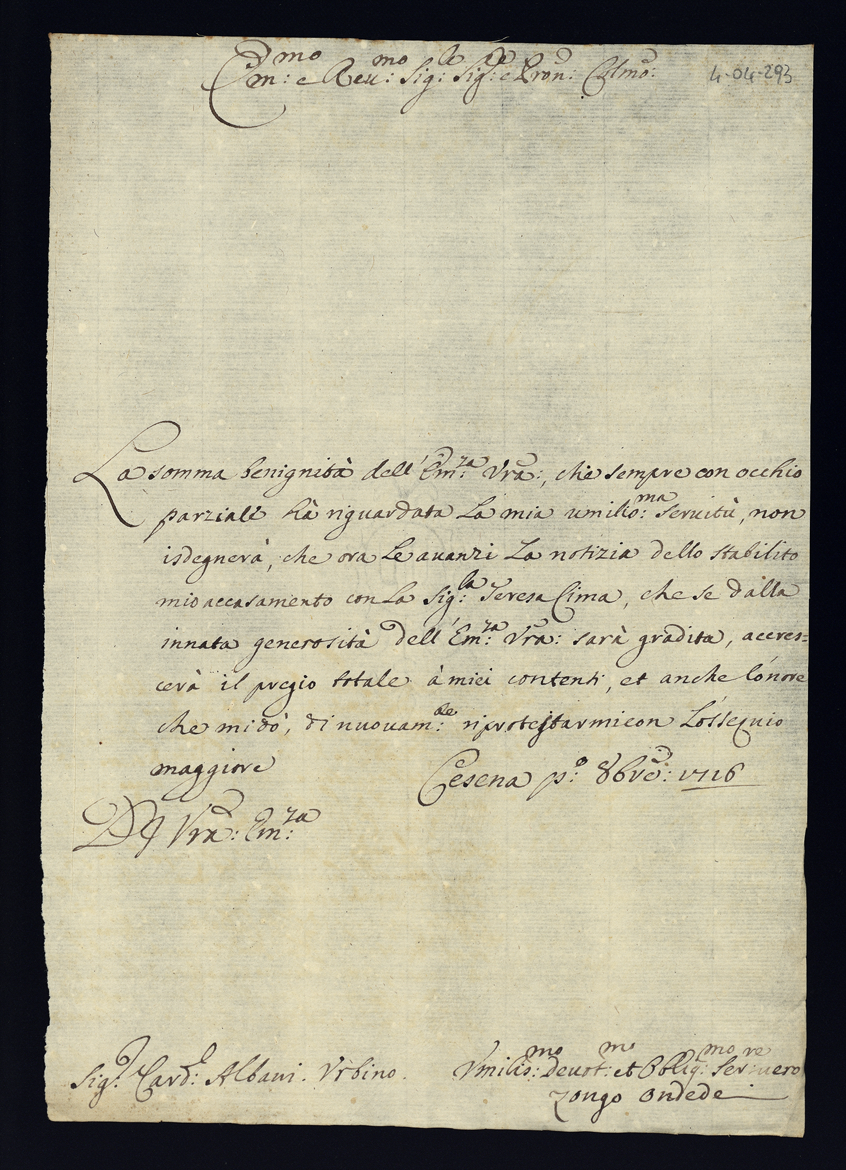 Em:mo e Reu:mo Sig:re Sig:re e Pron: Colmo:
4-04-293
La somma benignità dell'Em:za Vrã:, che sempre con occhio
parziale hà riguardata La mia umiliss:ma seruitù, non
isdegnerà, che ora Le auanzi La notizia dello stabilito
mio accasamento con La Sig:la Teresa Cima, che se dalla
innata generosità dell'Em:za Vrã: sarà gradita, accres=
cerà il pregio totale à miei contenti, et anche L'onore
che mi dò, di nuouam:te riprotestarmi con L'ossequio
maggiore
Cesena p:o 8bre: 1716
Di Vrã: Em:za
Sig:r Card:l Albani. Vrbino.
Vmiliss:mo deuot:mo et Obblig:mo Ser:re uero
Zongo Ondedei